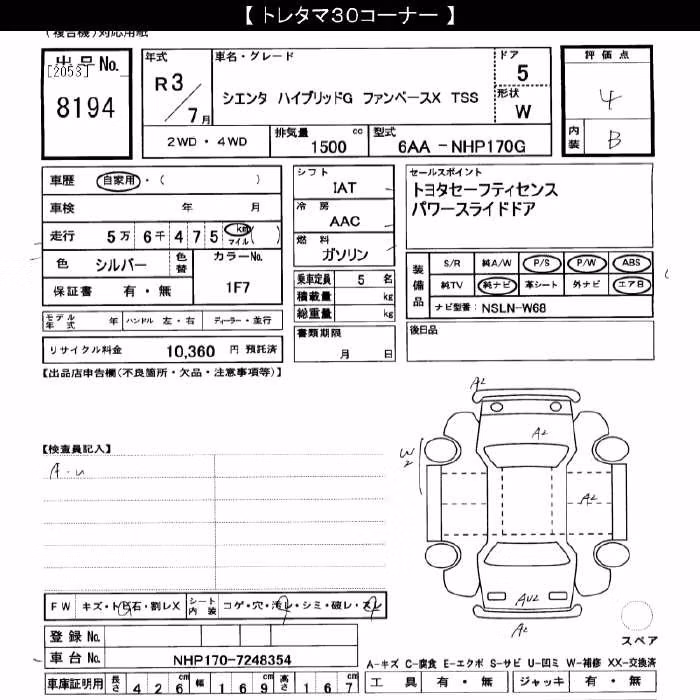 【 トレタマ30コーナー 】
(複合機)対応用紙
出品No.
[2053]
8194
年式
R3/7月
車名・グレード
シエンタ ハイブリッドG ファンベースX TSS
ドア
5
形状
W
2WD・4WD
排気量 1500 cc
型式 6AA -NHP170G
評価点
4
内装 B
車歴 自家用・( )
車検 年 月
走行 5万 6千 4 7 5 km マイル( )
色 シルバー 色替 カラーNo. 1F7
保証書 有・無
モデル年式 年 ハンドル 左・右 ディーラー・並行
リサイクル料金 10,360 円 預託済
シフト
IAT
冷房
AAC
燃料
ガソリン
乗車定員 5 名
積載量 kg
総重量 kg
書類期限
月 日
セールスポイント
トヨタセーフティセンス
パワースライドドア
装備品
S/R 純A/W P/S P/W ABS
純TV 純ナビ 革シート 外ナビ エアB
ナビ型番: NSLN-W68
後日品
【出品店申告欄(不良箇所・欠品・注意事項等)】
【検査員記入】
A-U
A2
A2
W2
A2
AU2
A2
スペア
FW キズ・トビ石・割レX シート内装 コゲ・穴・汚レ・シミ・破レ・スレ
登録No.
車台No. NHP170-7248354
車庫証明用 長さ 4 2 6 cm 幅 1 6 9 cm 高さ 1 6 7 cm
A-キズ C-腐食 E-エクボ S-サビ U-凹ミ W-補修 XX-交換済
工具 有・無 ジャッキ 有・無